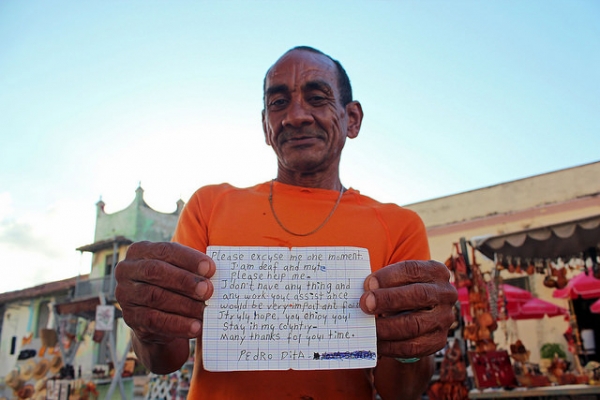 Please excuse me one moment.
I am deaf and mute
Please help me.
I don't have any thing and
any work your assistance
would be very important for
I truly hope you enjoy your
Stay in my country-
Many thanks for your time.
PEDRO DITA-